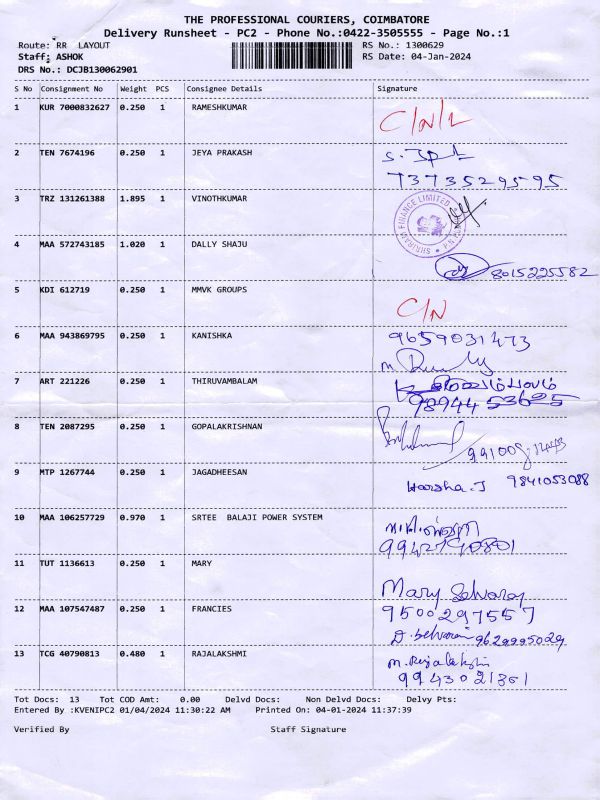 THE PROFESSIONAL COURIERS, COIMBATORE
Delivery Runsheet - PC2 - Phone No.:0422-3505555 - Page No.:1
Route: RR LAYOUT RS No.: 1300629
Staff: ASHOK RS Date: 04-Jan-2024
DRS No.: DCJB130062901
S No Consignment No Weight PCS Consignee Details Signature
1 KUR 7000832627 0.250 1 RAMESHKUMAR
C/N/L
2 TEN 7674196 0.250 1 JEYA PRAKASH
7373529595
3 TRZ 131261388 1.895 1 VINOTHKUMAR
SHRIRAM FINANCE LIMITED
4 MAA 572743185 1.020 1 DALLY SHAJU
8015225582
5 KDI 612719 0.250 1 MMVK GROUPS
C/N
6 MAA 943869795 0.250 1 KANISHKA
9659031473
7 ART 221226 0.250 1 THIRUVAMBALAM
98944 53625
8 TEN 2087295 0.250 1 GOPALAKRISHNAN
9 MTP 1267744 0.250 1 JAGADHEESAN
Harsha.J 9841053088
10 MAA 106257729 0.970 1 SRTEE BALAJI POWER SYSTEM
9942790801
11 TUT 1136613 0.250 1 MARY
Mary Selvaraj
12 MAA 107547487 0.250 1 FRANCIES
9500297557
D. Selvaraj 9629995029
13 TCG 40790813 0.480 1 RAJALAKSHMI
M. Rajalakshmi
9943021361
Tot Docs: 13 Tot COD Amt: 0.00 Delvd Docs: Non Delvd Docs: Delvy Pts:
Entered By :KVENIPC2 01/04/2024 11:30:22 AM Printed On: 04-01-2024 11:37:39
Verified By Staff Signature